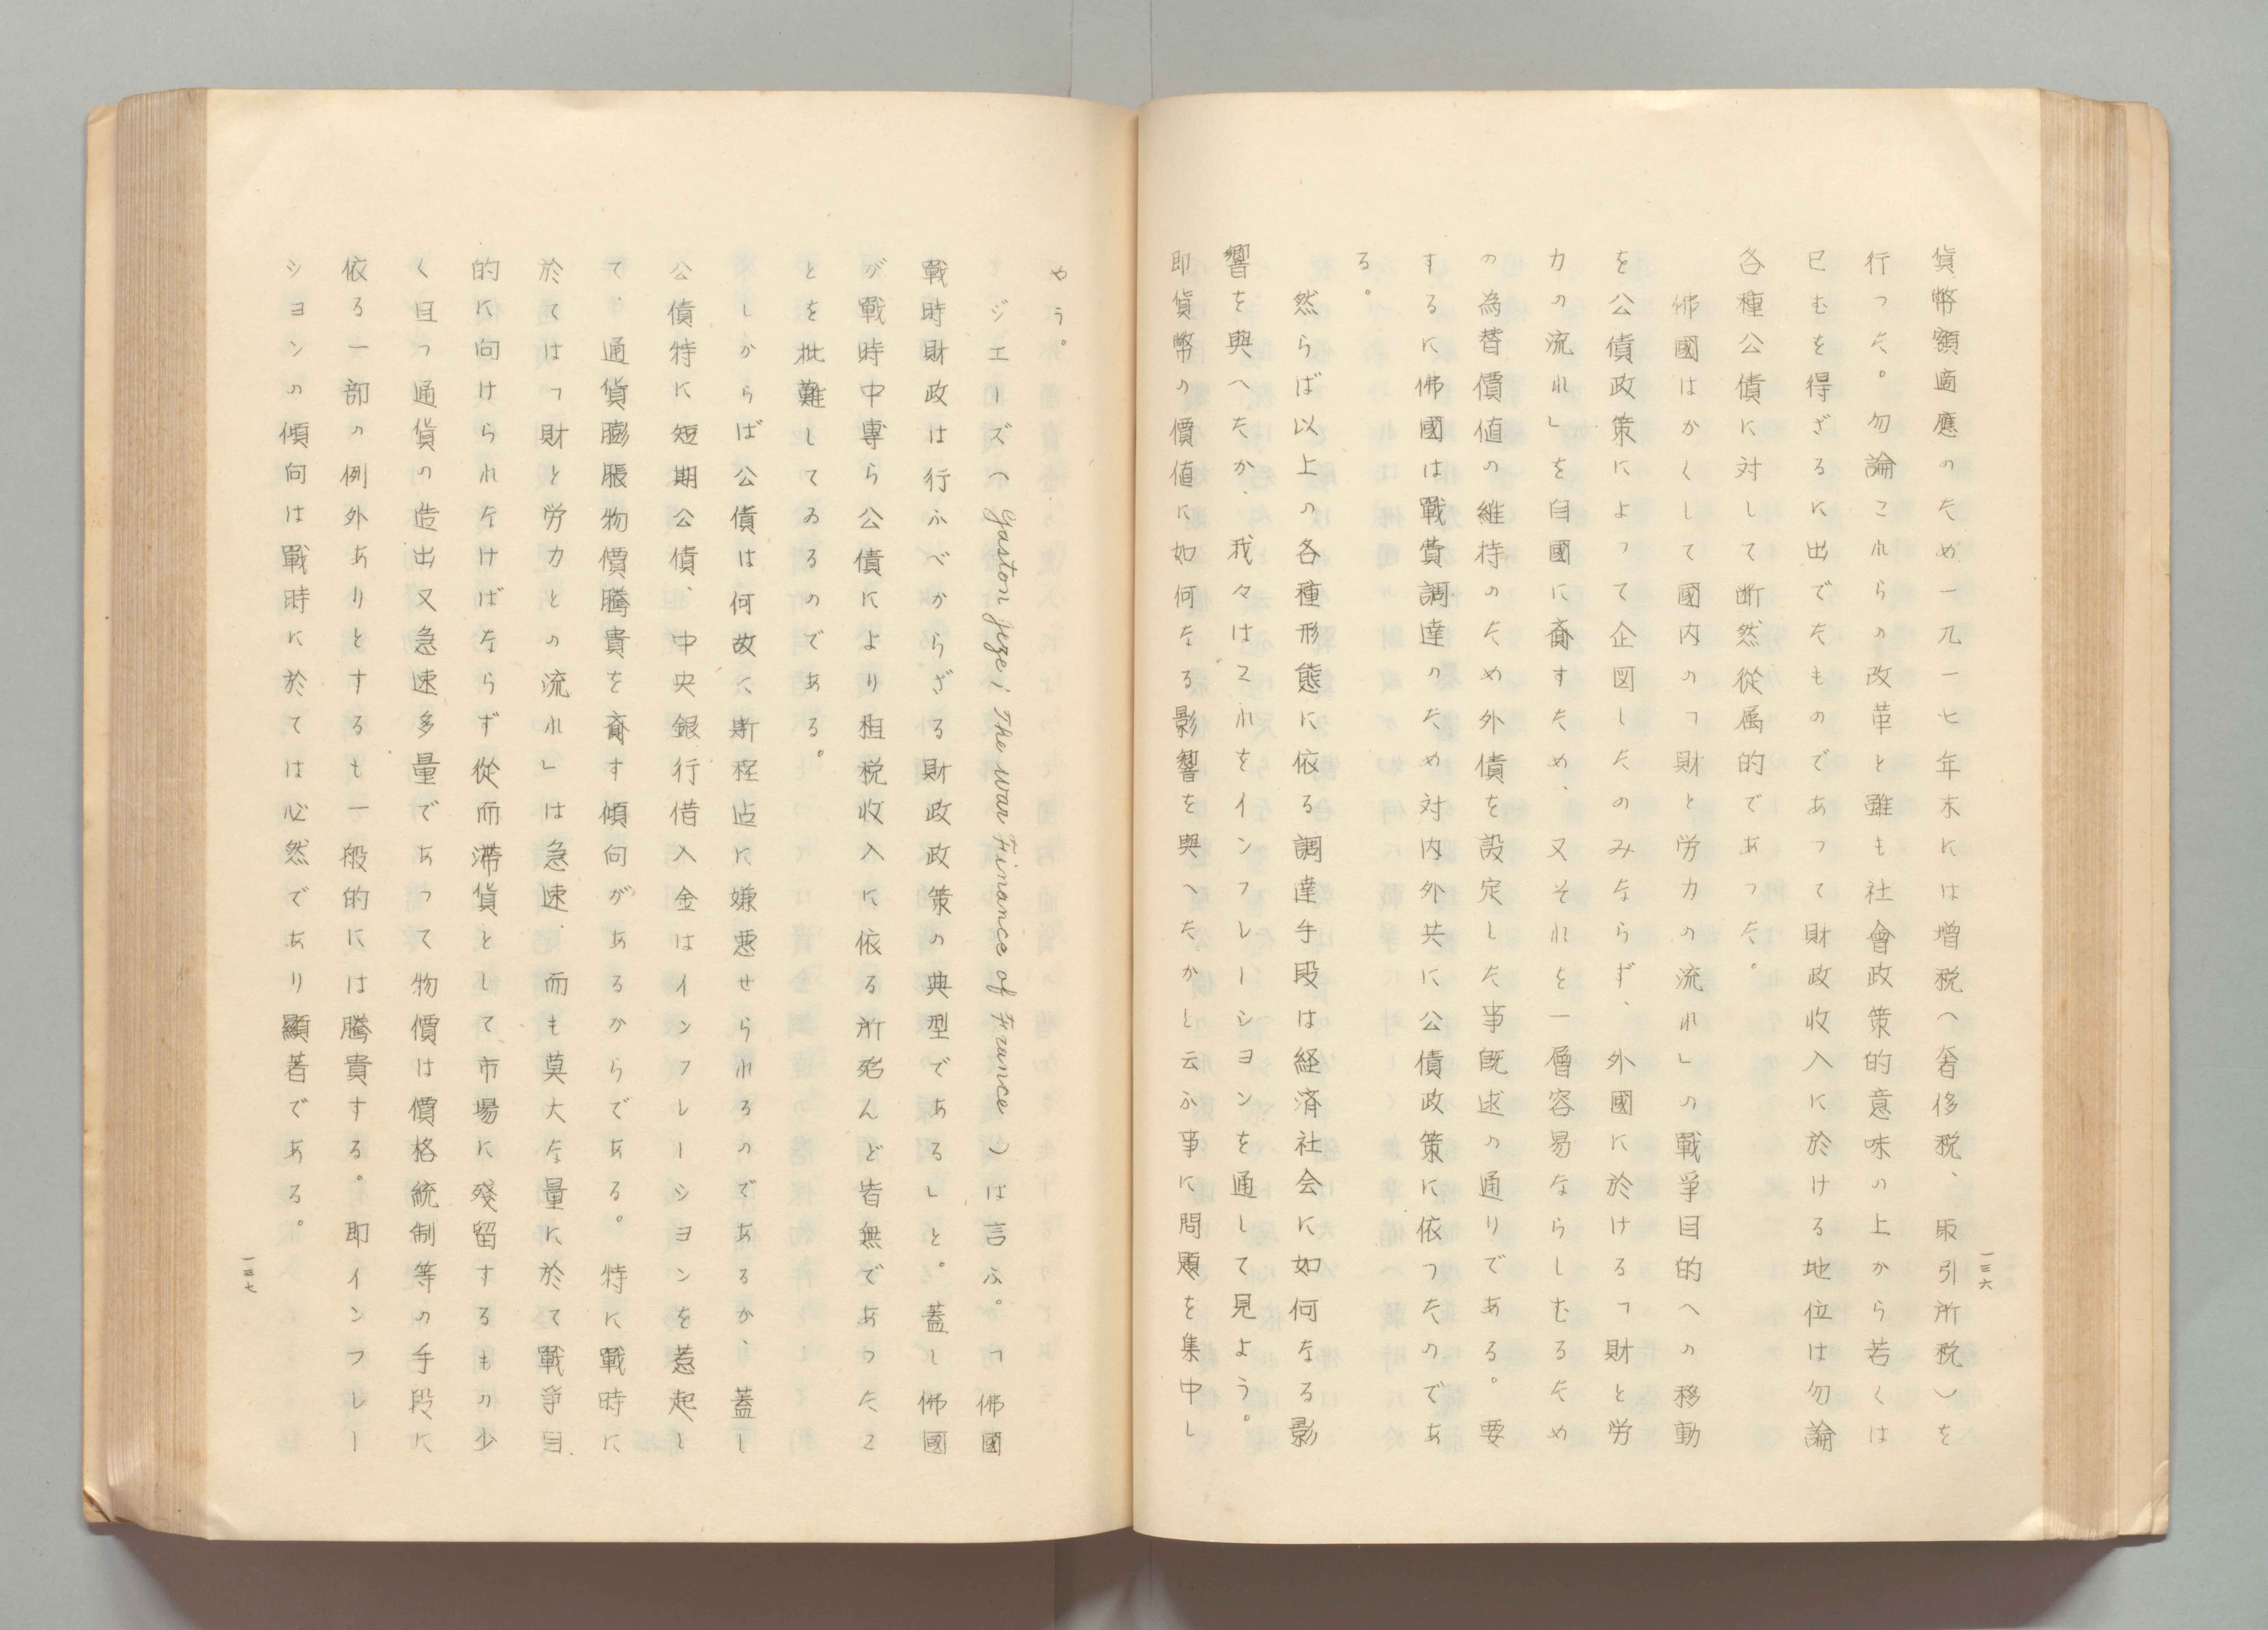 貨幣額適應のため一九一七年末には増税（奢侈税、取引所税）を
行つた。勿論これらの改革と雖も社會政策的意味の上から若くは
已むを得ざるに出でたものであって財政収入に於ける地位は勿論
各種公債に対して断然從属的であつた。
佛國はかくして國内の「財と労力の流れ」の戰爭目的への移動
を公債政策によつて企図したのみならず、外國に於ける「財と労
力の流れ」を自國に齎すため、又それを一層容易ならしむるため
の為替價値の維持のため外債を設定した事既述の通りである。要
するに佛國は戰費調達のため対内外共に公債政策に依つたのであ
る。
然らば以上の各種形態に依る調達手段は経済社会に如何なる影
響を與へたか、我々はこれをインフレーションを通して見よう。
即貨幣の價値に如何なる影響を與へたかと云ふ事に問題を集中し
一三六
やう。
ジェーズ（Gaston Jeze; The war Finance of France）は言ふ。「佛國
戰時財政は行ふべからざる財政政策の典型である」と。蓋し佛國
が戰時中專ら公債により租税收入に依る所殆んど皆無であつたこ
とを批難してゐるのである。
しからば公債は何故に斯程迄に嫌悪せられるのであるか、蓋し
公債特に短期公債、中央銀行借入金はインフレーションを惹起し
て、通貨膨脹物價騰貴を齎す傾向があるからである。特に戰時に
於ては「財と労力との流れ」は急速、而も莫大な量に於て戰爭目
的に向けられなければならず從而滞貨として市場に殘留するもの少
く且つ通貨の造出又急速多量であつて物價は價格統制等の手段に
依る一部の例外ありとするも一般的には騰貴する。即インフレー
ションの傾向は戰時に於ては必然であり顯著である。
一三七